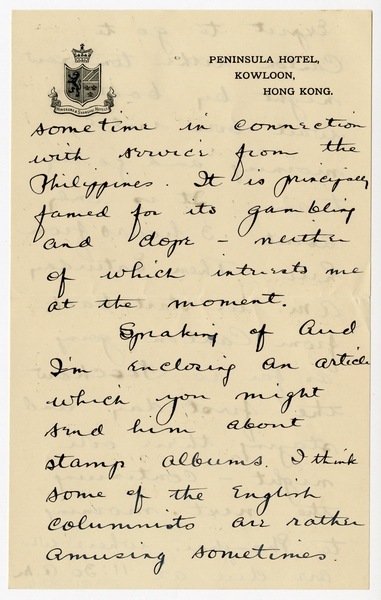 PENINSULA HOTEL,
KOWLOON,
HONG KONG.
sometime in connection
with service from the
Philippines. It is principally
famed for its gambling
and dope – neither
of which intrests me
at the moment.
Speaking of Aud
I'm enclosing an article
which you might
send him about
stamp albums. I think
some of the English
columnists are rather
amusing sometimes.